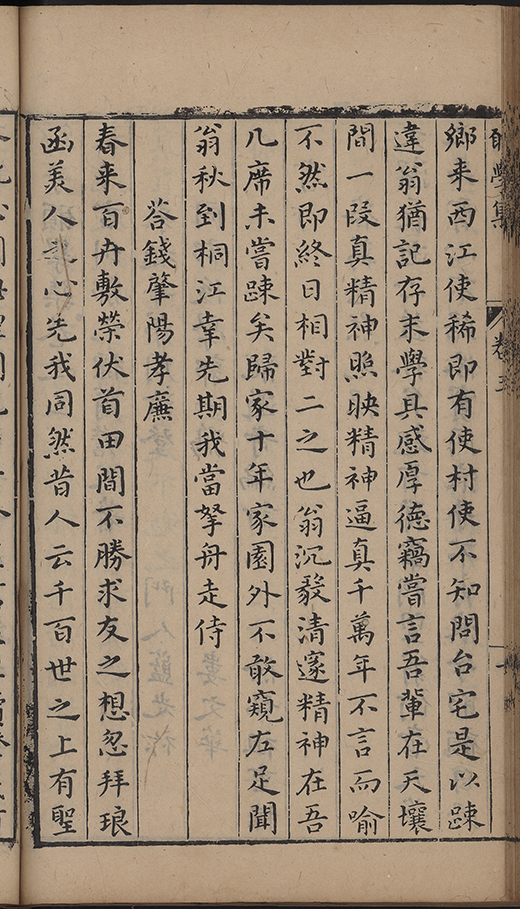 學集
卷五
鄉來西江使稀即有使村使不知問台宅是以踈
違翁猶記存末學具感厚德竊嘗言吾輩在天壤
間一段真精神照映精神逼真千萬年不言而喻
不然即終日相對二之也翁沉毅清邃精神在吾
几席未嘗踈矣歸家十年家園外不敢窺左足聞
翁秋到桐江幸先期我當拏舟走侍
荅錢肇陽孝廉
春来百卉敷榮伏首田間不勝求友之想忽拜琅
函美人之心先我同然昔人云千百世之上有聖